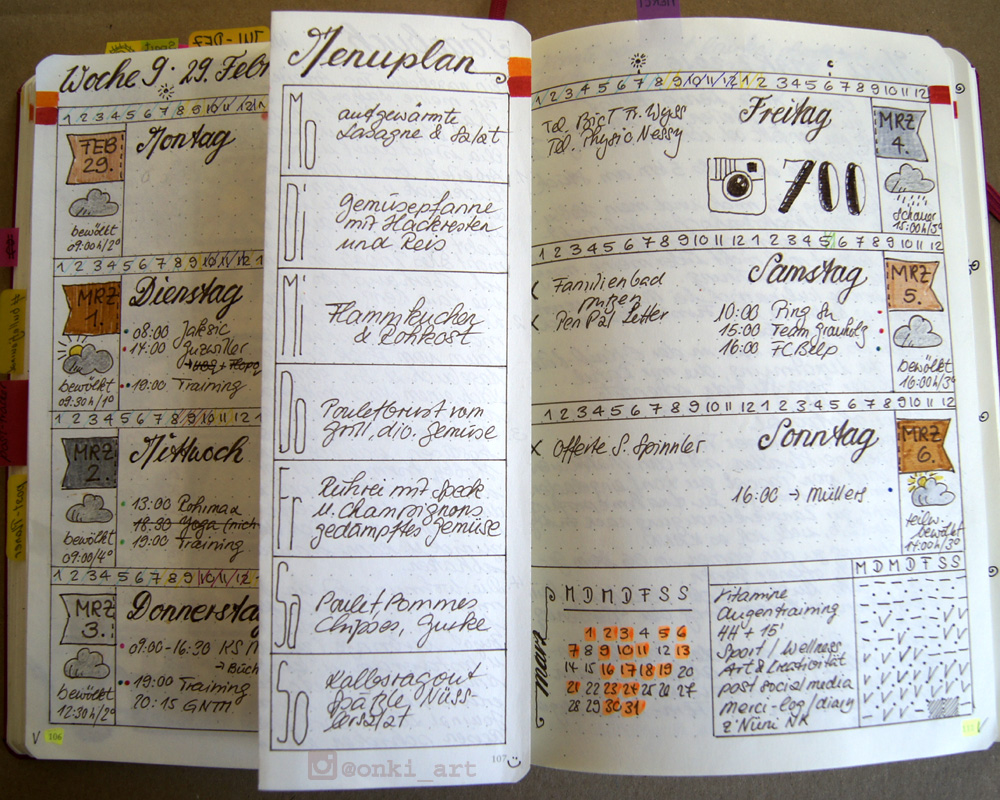 JUL - DEZ
Woche 9: 29. Febr
1 2 3 4 5 6 7 8 9 10 11 12 1
FEB
29.
Montag
bewölkt
09:00h/2°
1 2 3 4 5 6 7 8 9 10 11 12
MRZ
1.
Dienstag
08:00 Jaksic
14:00 Gutzwiller
19:00 Training
bewölkt
09:30h/1°
1 2 3 4 5 6 7 8 9 10 11 12
MRZ
2.
Mittwoch
13:00 Rohimaa
18:30 Yoga (nich
19:00 Training
bewölkt
09:00/4°
1 2 3 4 5 6 7 8 9 10 11 12
MRZ
3.
Donnerstag
09:00-16:30 KS M
→ Büch
19:00 Training
20:15 GNTM
bewölkt
12:30h/2°
106
Menuplan
Mo
aufgewärmte
Lasagne & Salat
Di
Gemüsepfanne
mit Hackresten
und Reis
Mi
Flammkuchen
& Rohkost
Do
Pouletbrust vom
Grill, div. Gemüse
Fr
Rührei mit Speck
u. Champignons
gedämpftes Gemüse
Sa
Poulet Pommes
Chipses, Gurke
So
Kalbsragout
Spätzle, Nüss-
lersalat
107
@onki_art
1 2 3 4 5 6 7 8 9 10 11 12 1 2 3 4 5 6 7 8 9 10 11 12
Tel. BicT Fr. Wyss
Tel. Physio Nessy
Freitag
MRZ
4.
700
Schauer
15:00h/5°
1 2 3 4 5 6 7 8 9 10 11 12 1 2 3 4 5 6 7 8 9 10 11 12
x Familienbad
putzen
x PenPal Letter
Samstag
10:00 Ping SH
15:00 Team Grauholz
16:00 FC Belp
MRZ
5.
bewölkt
16:00h/3°
1 2 3 4 5 6 7 8 9 10 11 12 1 2 3 4 5 6 7 8 9 10 11 12
x Offerte S. Spinnler
Sonntag
16:00 → Müllers
MRZ
6.
teilw.
bewölkt
14:00h/3°
März
M D M D F S S
1 2 3 4 5 6
7 8 9 10 11 12 13
14 15 16 17 18 19 20
21 22 23 24 25 26 27
28 29 30 31
M D M D F S S
Vitamine
Augentraining
HH + 15'
Sport / Wellness
Art & Creativität
post social media
merci-log/diary
z'Nüni NK